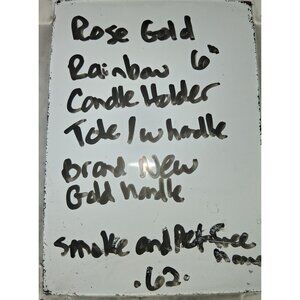 Rose Gold
Rainbow 6"
Candle Holder
Tote / w handle
Brand New
Gold handle
Smoke and Pet-free
home
.62.